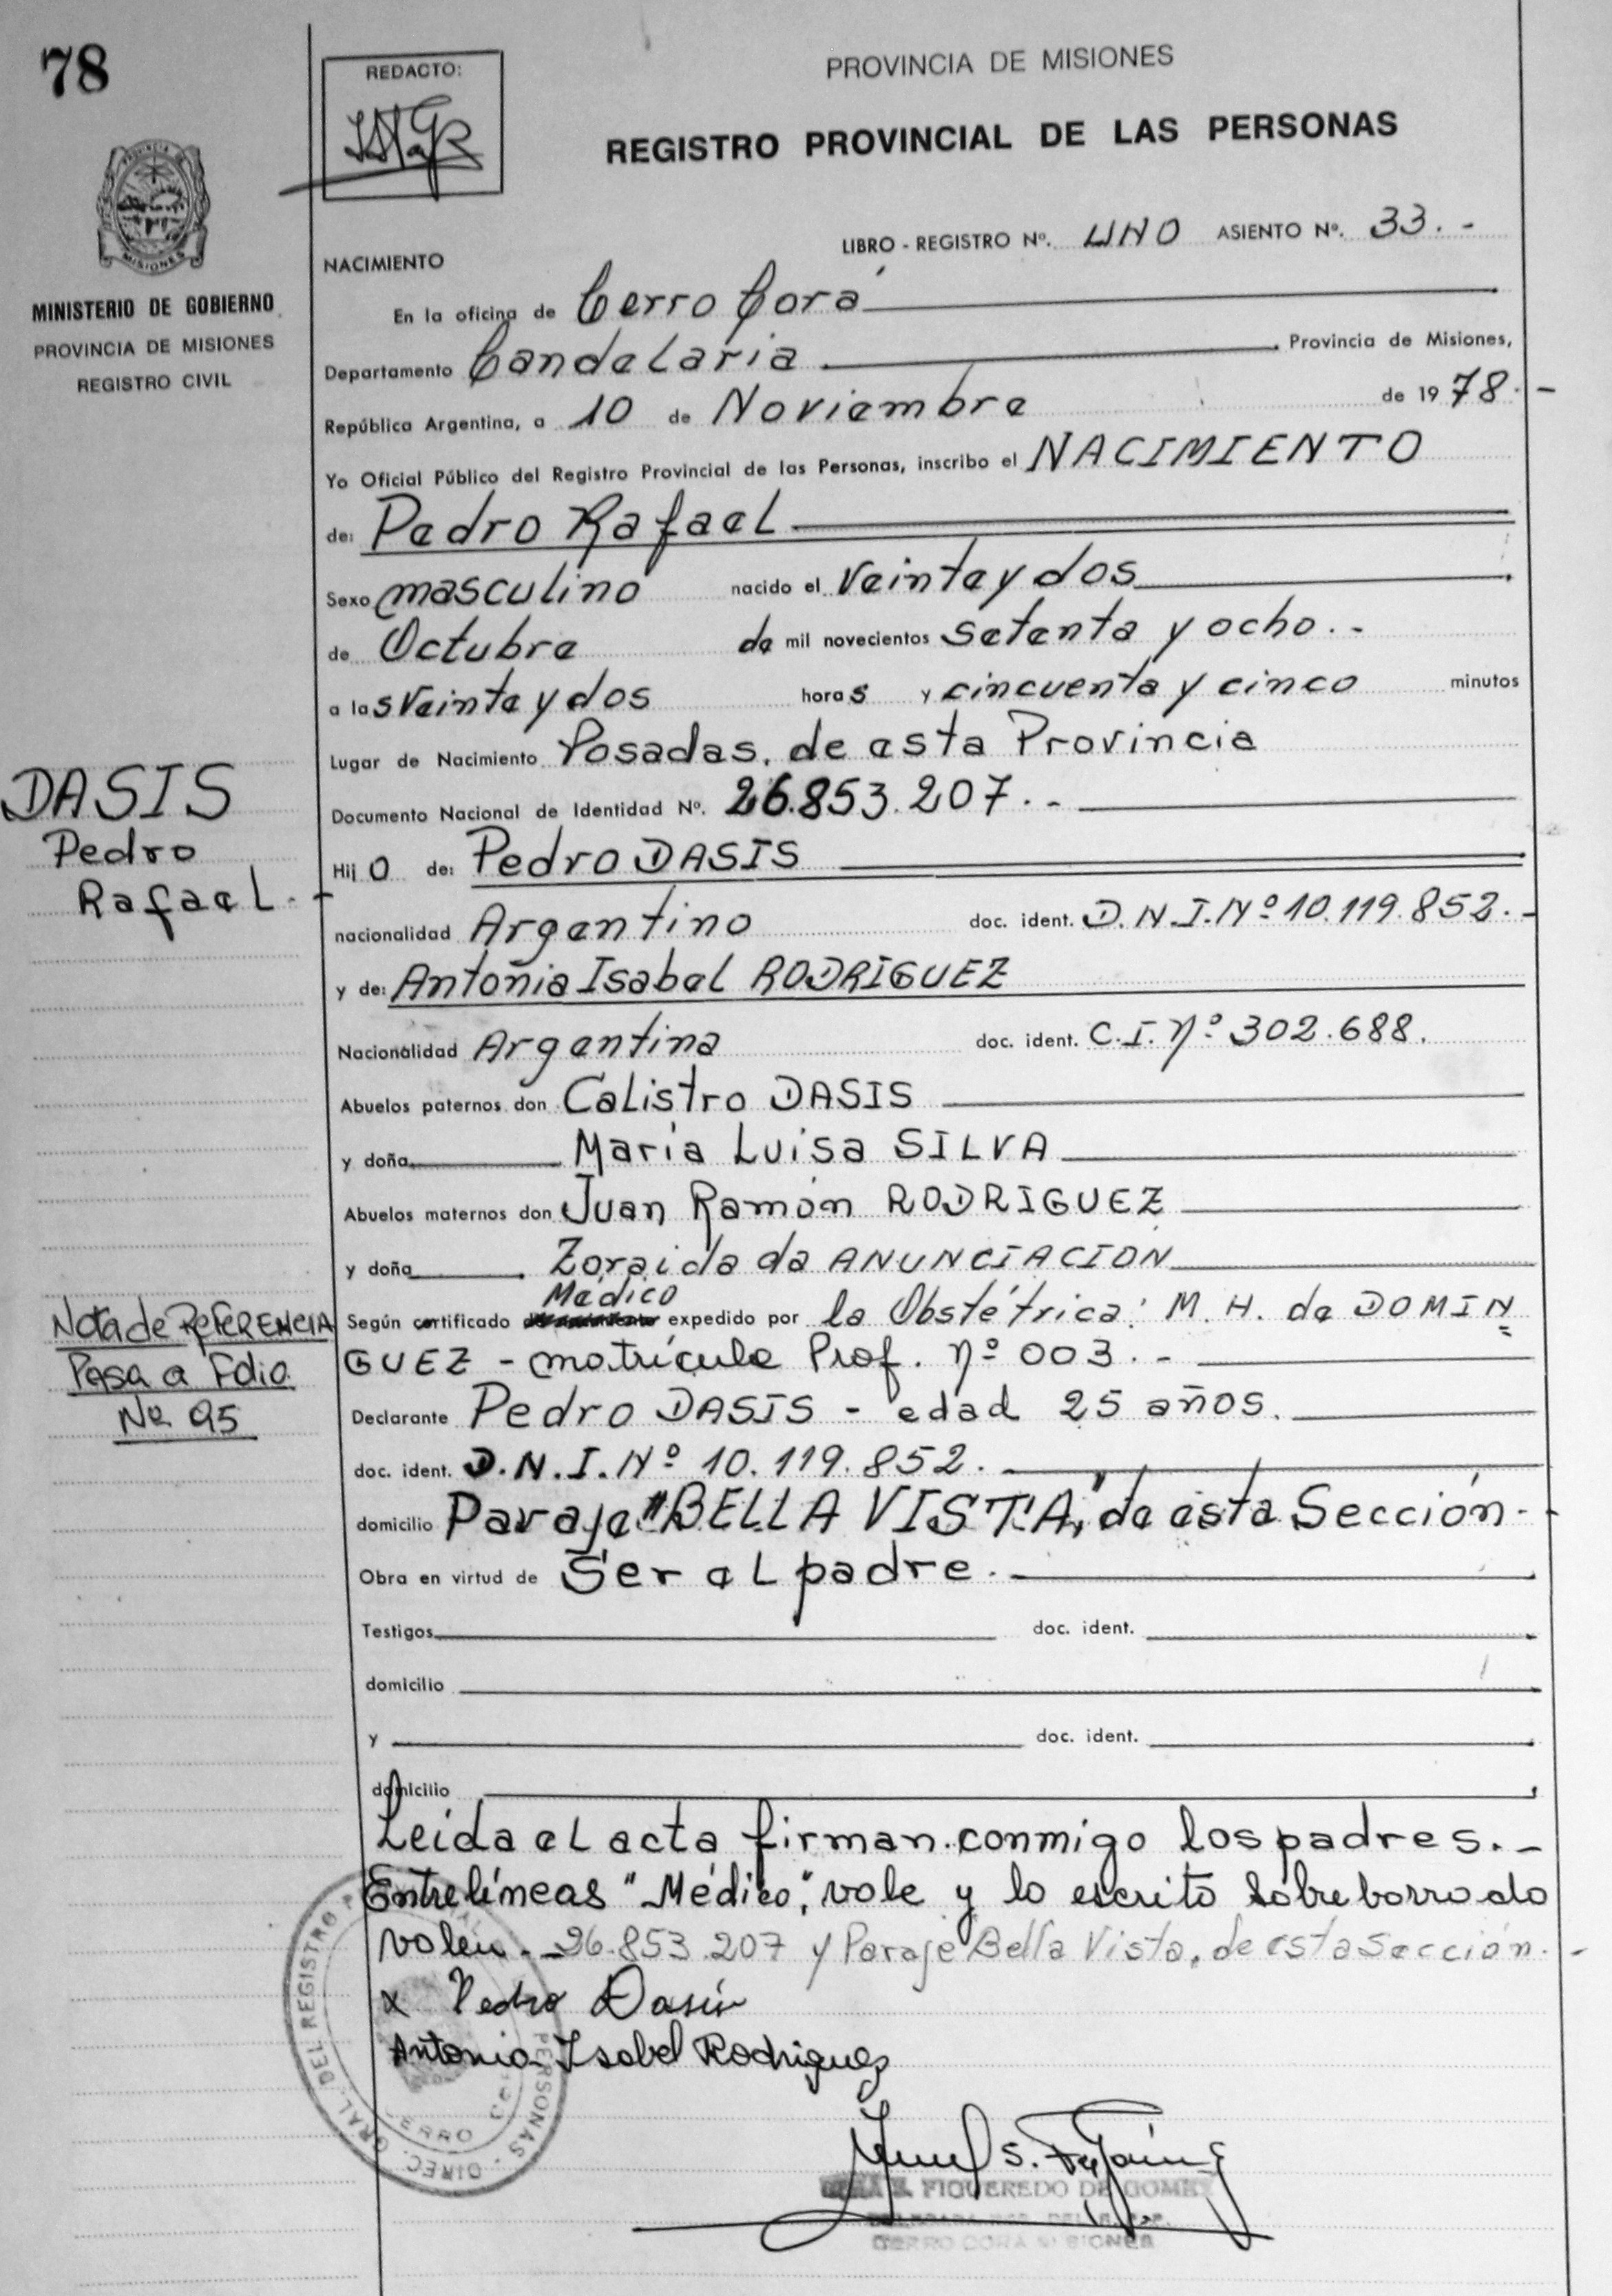 78
REDACTO:
PROVINCIA DE MISIONES
REGISTRO PROVINCIAL DE LAS PERSONAS
MISIONES
MINISTERIO DE GOBIERNO
PROVINCIA DE MISIONES
REGISTRO CIVIL
LIBRO - REGISTRO Nº. UNO ASIENTO Nº. 33.-
NACIMIENTO
En la oficina de Cerro Corá
Departamento Candelaria Provincia de Misiones,
República Argentina, a 10 de Noviembre de 1978.-
Yo Oficial Público del Registro Provincial de las Personas, inscribo el NACIMIENTO
de: Pedro Rafael
Sexo masculino nacido el veinte y dos
de Octubre de mil novecientos setenta y ocho.-
a las veinte y dos horas y cincuenta y cinco minutos
Lugar de Nacimiento Posadas, de esta Provincia
Documento Nacional de Identidad Nº. 26.853.207.-
DASIS
Pedro
Rafael.-
Hijo de: Pedro DASIS
nacionalidad Argentino doc. ident. D.N.I.Nº 10.119.852.-
y de: Antonia Isabel RODRIGUEZ
Nacionalidad Argentina doc. ident. C.I. nº 302.688.
Abuelos paternos don Calistro DASIS
y doña María Luisa SILVA
Abuelos maternos don Juan Ramón RODRIGUEZ
y doña Zoraida da ANUNCIACION
Médico
Según certificado expedido por la Obstétrica: M. H. de DOMIN
GUEZ - matrícula Prof. nº 003.-
Nota de REFERENCIA
Pasa a Folio
Nº 95
Declarante Pedro DASIS - edad 25 años.
doc. ident. D.N.I.Nº 10.119.852.
domicilio Paraje "BELLA VISTA", de esta Sección.-
Obra en virtud de Ser el padre.
Testigos doc. ident.
domicilio
y doc. ident.
domicilio
Leída el acta firman conmigo los padres.-
Entrelíneas "Médico", vale y lo escrito sobre borrado
valen.- 26.853.207 y Paraje Bella Vista, de esta Sección.-
x Pedro Dasis
Antonia Isabel Rodriguez
DIREC. GRAL. DEL REGISTRO PERSONAS
CERRO
S. FIGUEREDO DE GOMEZ
CERRO CORA MISIONES